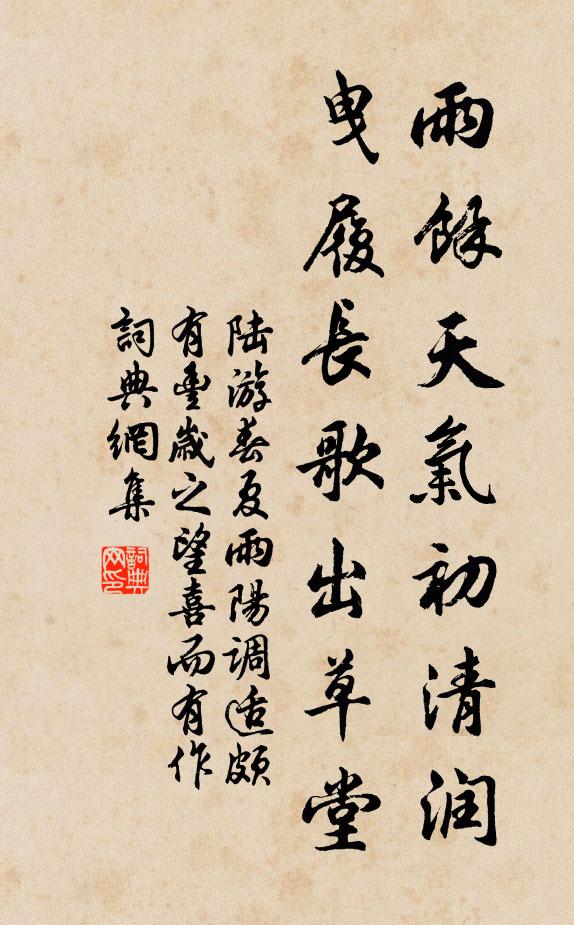 雨餘天氣初清润
曳履長歌出草堂
陆游春夏雨陽调适颇
有豐歲之望喜而有作
詞典網集
詞典
网印